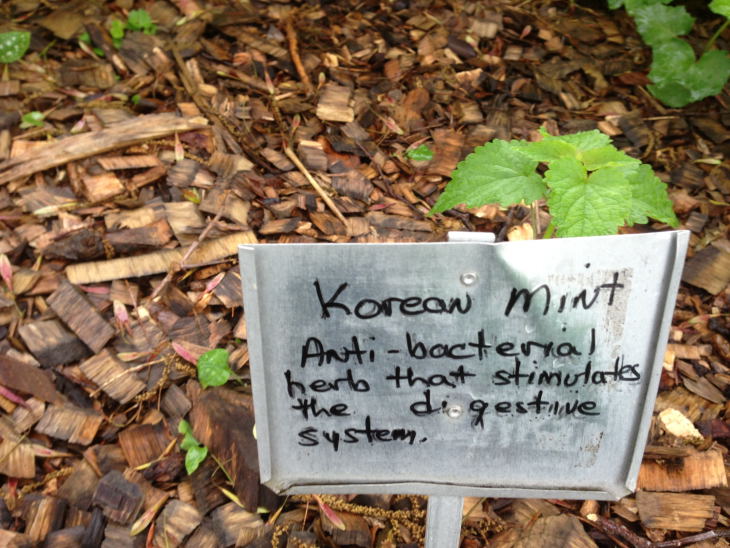 Korean Mint
Anti-bacterial
herb that stimulates
the digestive
system.